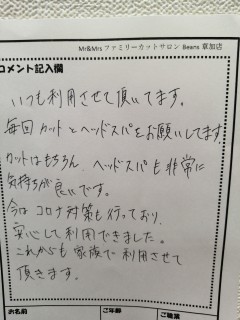 Mr&Mrsファミリーカットサロン Beans 草加店
コメント記入欄
いつも利用させて頂いてます。
毎回カットとヘッドスパをお願いしてます。
カットはもちろん、ヘッドスパも非常に
気持ちが良いです。
今はコロナ対策も行っており、
安心して利用できました。
これからも家族で利用させて
頂きます。
お名前 ご年齢 ご職業